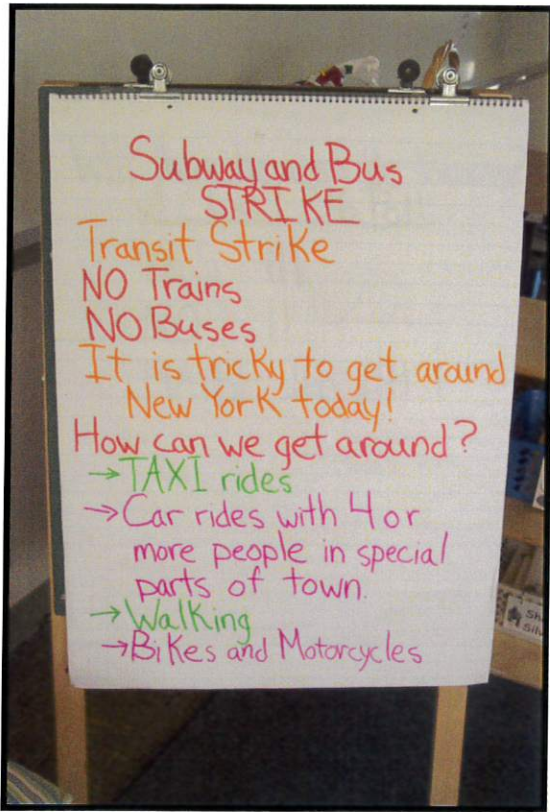 Subway and Bus
STRIKE
Transit Strike
NO Trains
NO Buses
It is tricky to get around
New York today!
How can we get around?
→TAXI rides
→Car rides with 4 or
more people in special
parts of town.
→Walking
→Bikes and Motorcycles